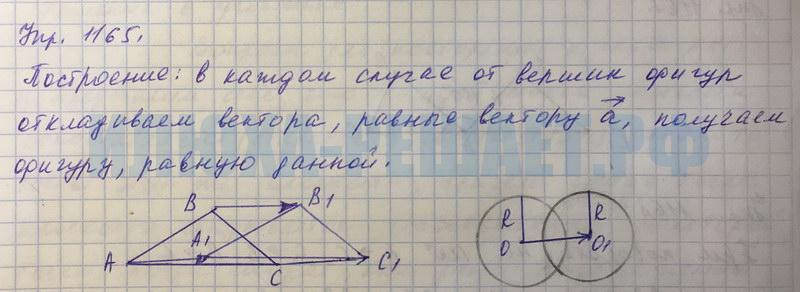 Упр. 1165.
Построение: в каждом случае от вершин фигур
откладываем вектора, равные вектору a, получаем
фигуру, равную данной.
B B1 R R
A1 O O1
A C C1